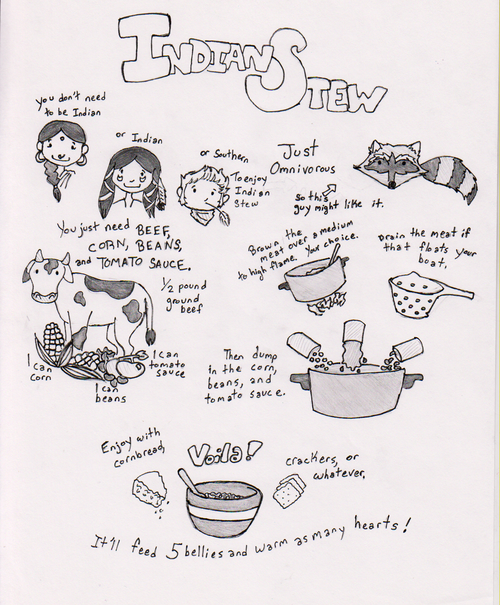 INDIAN STEW
You don't need
to be Indian
or Indian
or Southern
To enjoy
Indian
Stew
Just
Omnivorous
So this
guy might like it.
You just need BEEF,
CORN, BEANS,
and TOMATO SAUCE.
1/2 pound
ground
beef
1 can
corn
1 can
beans
1 can
tomato
sauce
Brown the
meat over a medium
to high flame. Your choice.
Drain the meat if
that floats your
boat.
Then dump
in the corn,
beans, and
tomato sauce.
Enjoy with
cornbread,
Voila!
crackers, or
whatever.
It'll feed 5 bellies and warm as many hearts!